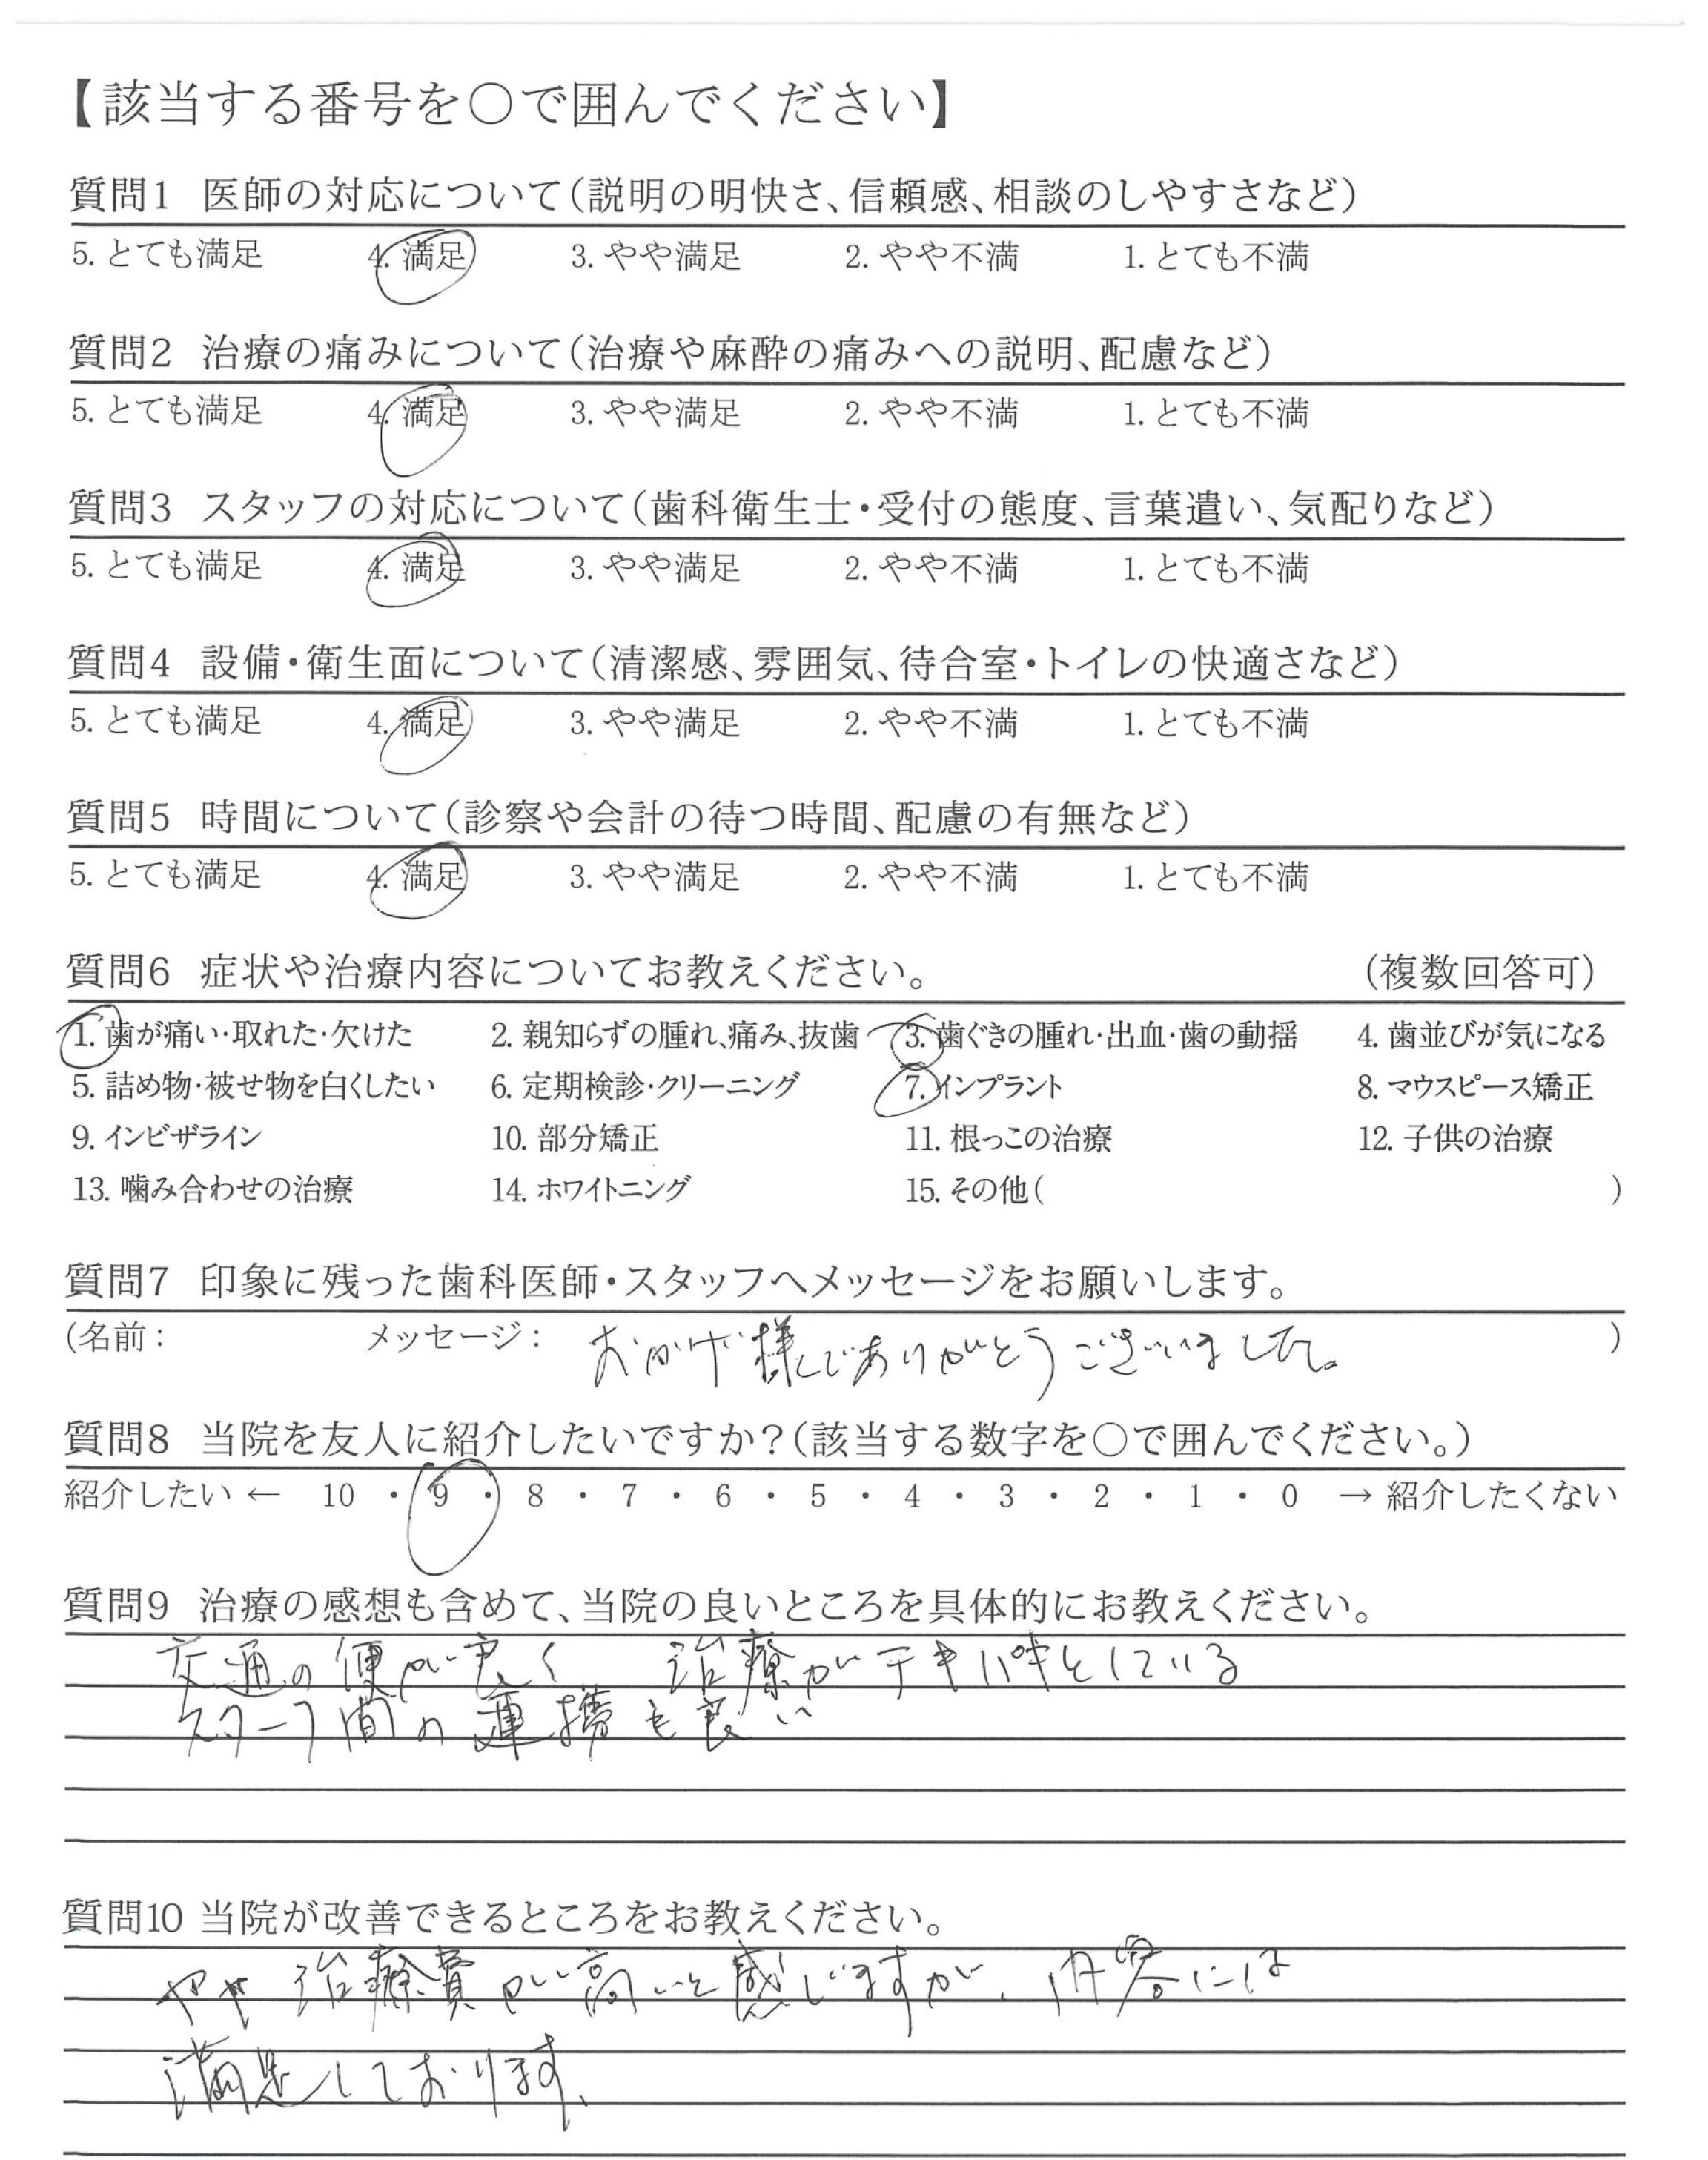 【該当する番号を○で囲んでください】
質問1 医師の対応について(説明の明快さ、信頼感、相談のしやすさなど)
5. とても満足 4. 満足 3. やや満足 2. やや不満 1. とても不満
質問2 治療の痛みについて(治療や麻酔の痛みへの説明、配慮など)
5. とても満足 4. 満足 3. やや満足 2. やや不満 1. とても不満
質問3 スタッフの対応について(歯科衛生士・受付の態度、言葉遣い、気配りなど)
5. とても満足 4. 満足 3. やや満足 2. やや不満 1. とても不満
質問4 設備・衛生面について(清潔感、雰囲気、待合室・トイレの快適さなど)
5. とても満足 4. 満足 3. やや満足 2. やや不満 1. とても不満
質問5 時間について(診察や会計の待つ時間、配慮の有無など)
5. とても満足 4. 満足 3. やや満足 2. やや不満 1. とても不満
質問6 症状や治療内容についてお教えください。 (複数回答可)
1. 歯が痛い・取れた・欠けた 2. 親知らずの腫れ、痛み、抜歯 3. 歯ぐきの腫れ・出血・歯の動揺 4. 歯並びが気になる
5. 詰め物・被せ物を白くしたい 6. 定期検診・クリーニング 7. インプラント 8. マウスピース矯正
9. インビザライン 10. 部分矯正 11. 根っこの治療 12. 子供の治療
13. 噛み合わせの治療 14. ホワイトニング 15. その他( )
質問7 印象に残った歯科医師・スタッフへメッセージをお願いします。
(名前: メッセージ: おかげ様でありがとうございました。 )
質問8 当院を友人に紹介したいですか?(該当する数字を○で囲んでください。)
紹介したい ← 10 ・ 9 ・ 8 ・ 7 ・ 6 ・ 5 ・ 4 ・ 3 ・ 2 ・ 1 ・ 0 → 紹介したくない
質問9 治療の感想も含めて、当院の良いところを具体的にお教えください。
交通の便が良く 治療がテキパキとしている
スタッフ間の連携も良い
質問10 当院が改善できるところをお教えください。
やや 治療費が高いと感じますが、内容には
満足しております。